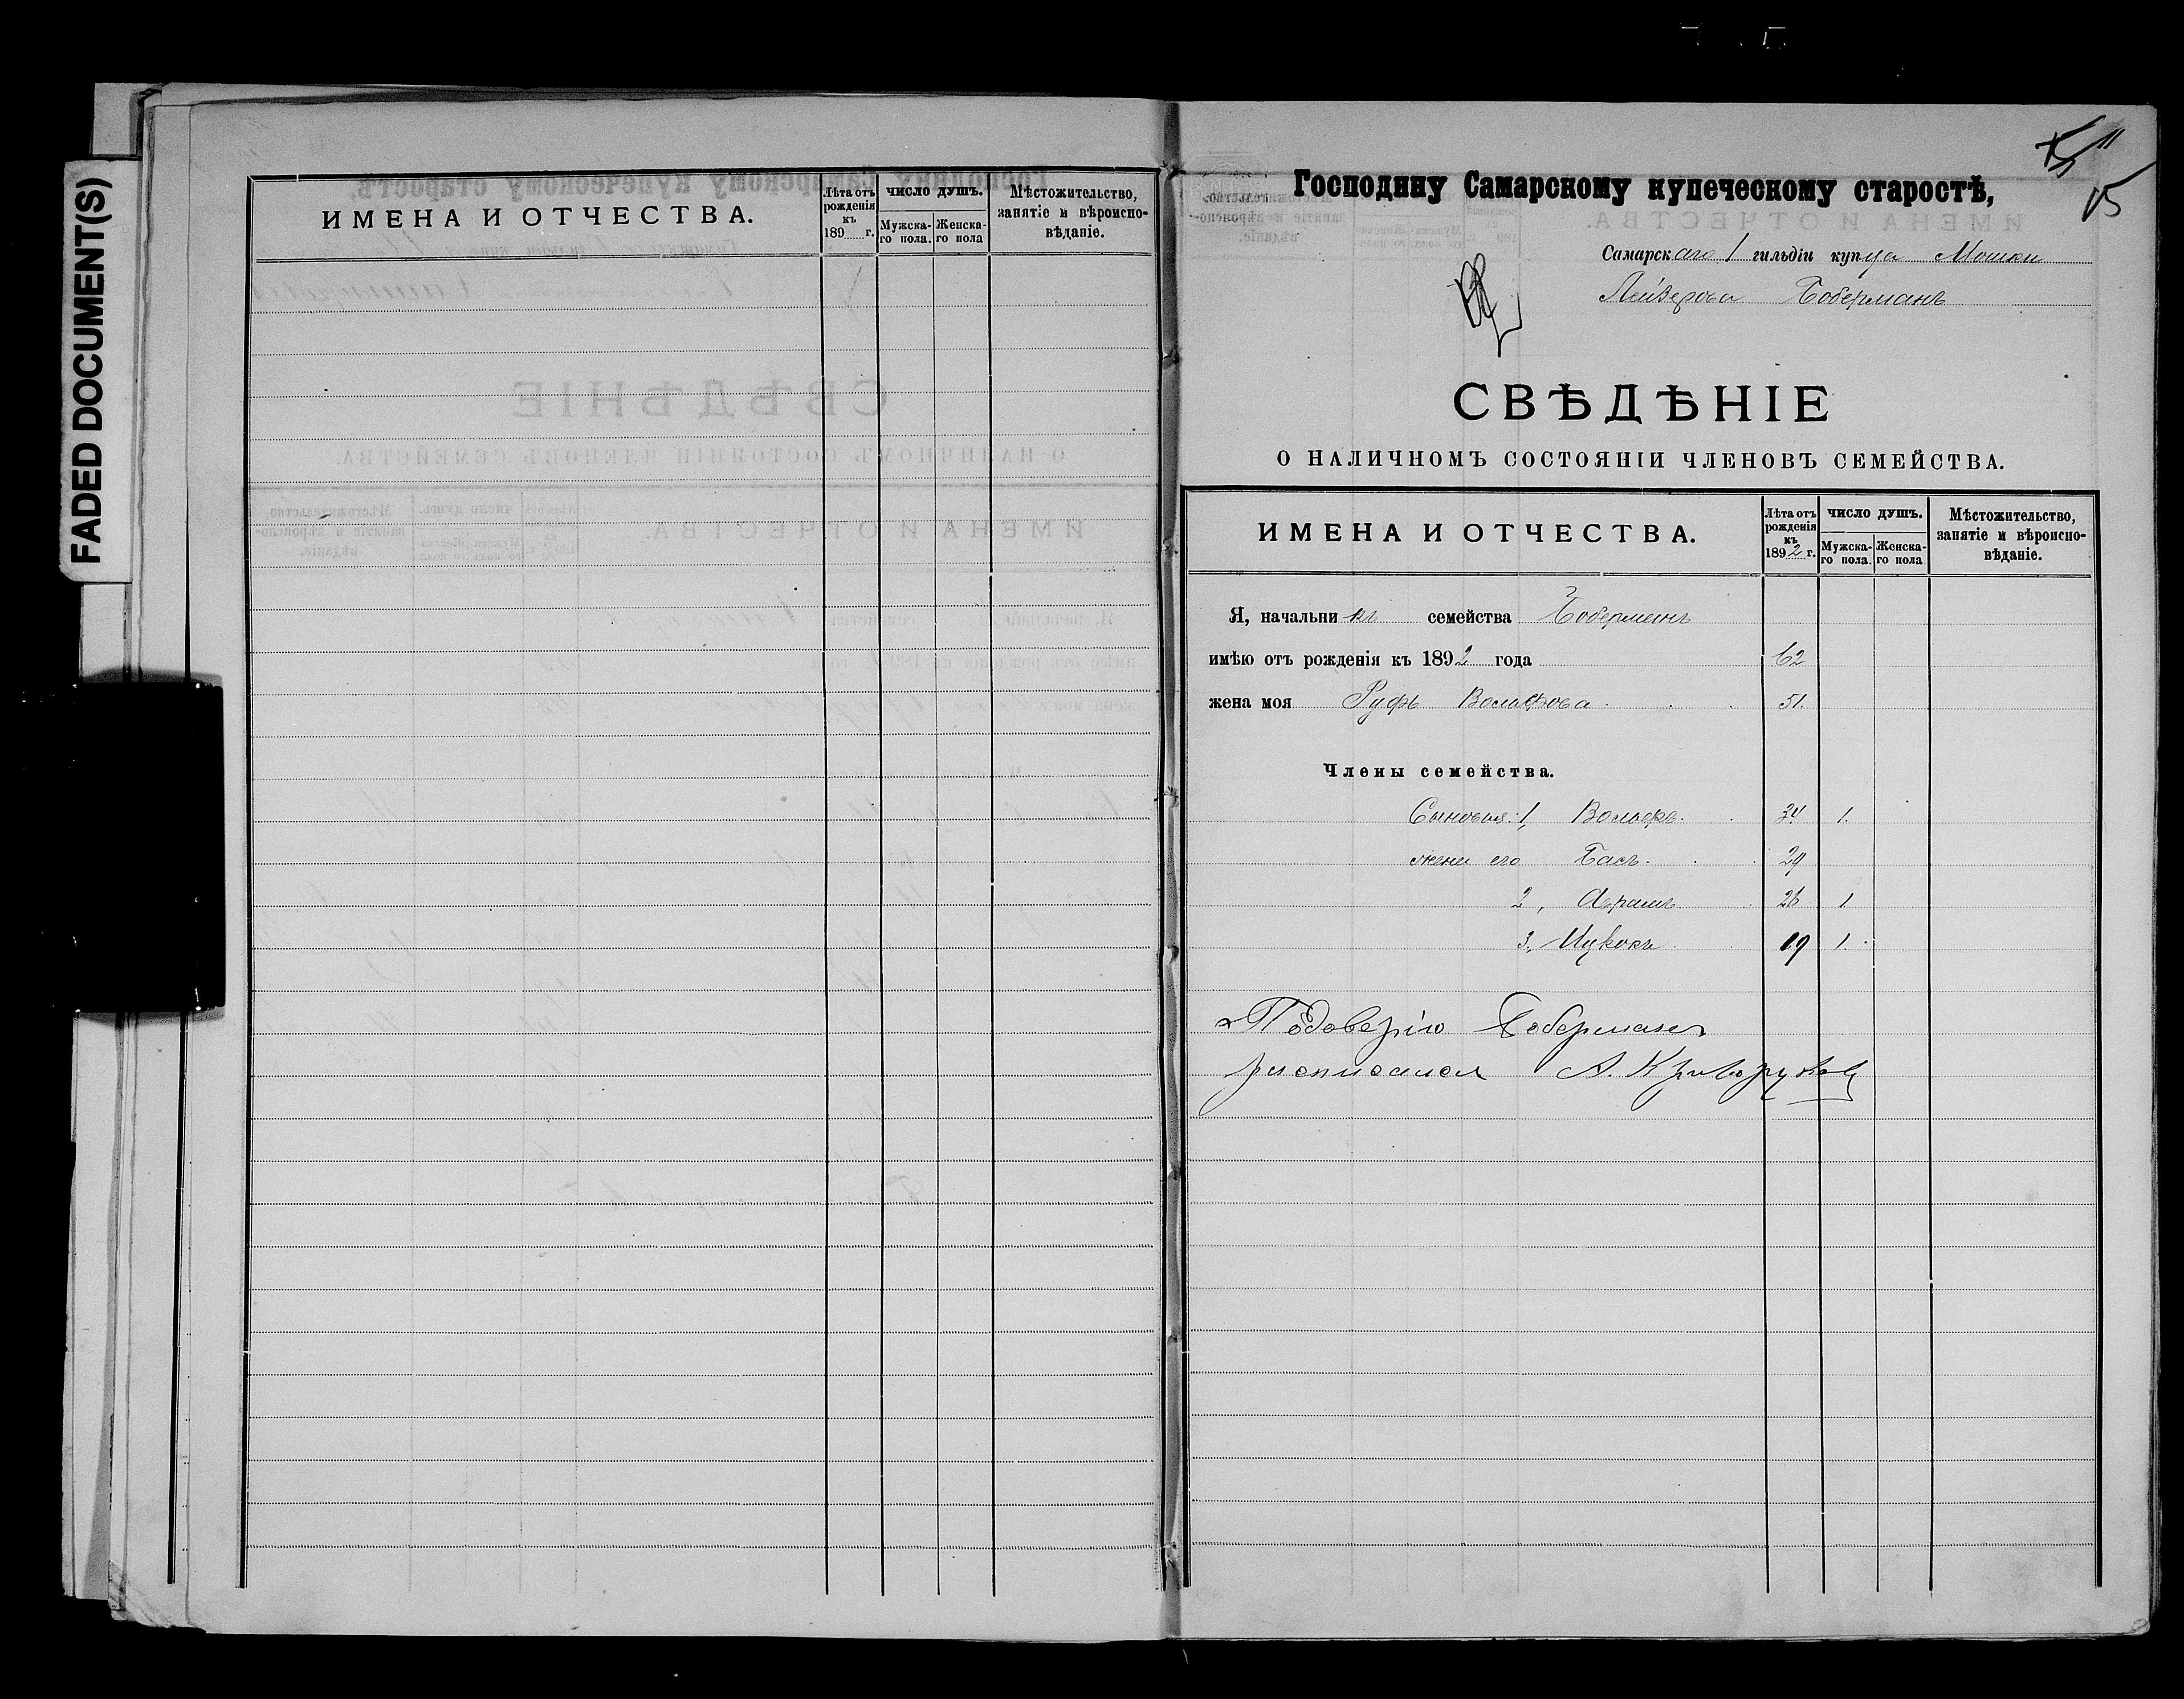 FADED DOCUMENT(S)
ИМЕНА И ОТЧЕСТВА.
Лѣта отъ рожденія къ 189 г.
ЧИСЛО ДУШЪ.
Мужска-го пола.
Женска-го пола
Мѣстожительство, занятіе и вѣроиспо-вѣданіе.
15
Господину Самарскому купеческому старостѣ,
Самарскаго 1 гильдіи купца Мошки
Лейзерова Боберманъ
СВѢДѢНІЕ
О НАЛИЧНОМЪ СОСТОЯНІИ ЧЛЕНОВЪ СЕМЕЙСТВА.
ИМЕНА И ОТЧЕСТВА.
Лѣта отъ рожденія къ 1892 г.
ЧИСЛО ДУШЪ.
Мужска-го пола.
Женска-го пола
Мѣстожительство, занятіе и вѣроиспо-вѣданіе.
Я, начальникъ семейства Боберманъ
имѣю отъ рожденія къ 1892 года 62
жена моя Руфь Вольфова 51.
Члены семейства.
Сыновья: 1, Вольфъ. 34 1.
жена его Бася. 29
2, Абрамъ 26 1
3, Ицкокъ 19 1.
Подоверію Боберманъ
росписался А. Криворукова